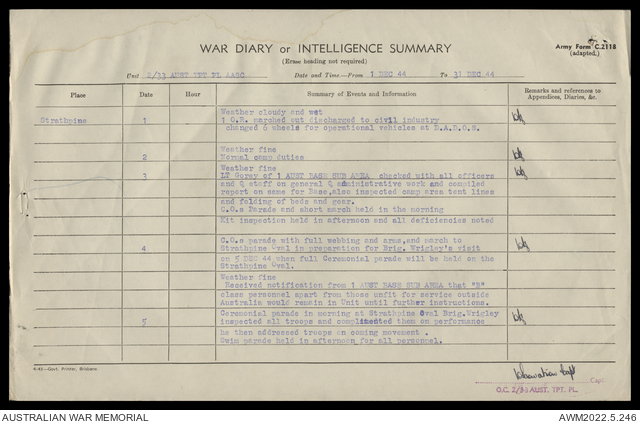 WAR DIARY or INTELLIGENCE SUMMARY
(Erase heading not required)
Army Form C.2118
(adapted.)
Unit 2/33 AUST TPT PL AASC Date and Time.—From 1 DEC 44 To 31 DEC 44
Place Date Hour Summary of Events and Information Remarks and references to
Appendices, Diaries, &c.
Weather cloudy and wet
Strathpine 1 1 O.R. marched out discharged to civil industry
changed 6 wheels for operational vehicles at D.A.D.O.S.
Weather fine
2 Normal camp duties
Weather fine
3 LT Gorey of 1 AUST BASE SUB AREA checked with all officers
and Q staff on general Q administrative work and compiled
report on same for Base, also inspected camp area tent lines
and folding of beds and gear.
C.O.s Parade and short march held in the morning
Kit inspection held in afternoon and all deficiencies noted
C.O.s parade with full webbing and arms, and march to
4 Strathpine Oval in preparation for Brig. Wrigley's visit
on 5 DEC 44 when full Ceremonial parade will be held on the
Strathpine Oval.
Weather fine
Received notification from 1 AUST BASE SUB AREA that "B"
class personnel apart from those unfit for service outside
Australia would remain in Unit until further instructions.
Ceremonial parade in morning at Strathpine Oval Brig. Wrigley
5 inspected all troops and complimented them on performance
he then addressed troops on coming movement.
Swim parade held in afternoon for all personnel.
Govt. Printer, Brisbane.
Capt
O.C. 2/33 AUST. TPT. PL.
AUSTRALIAN WAR MEMORIAL
AWM2022.5.246